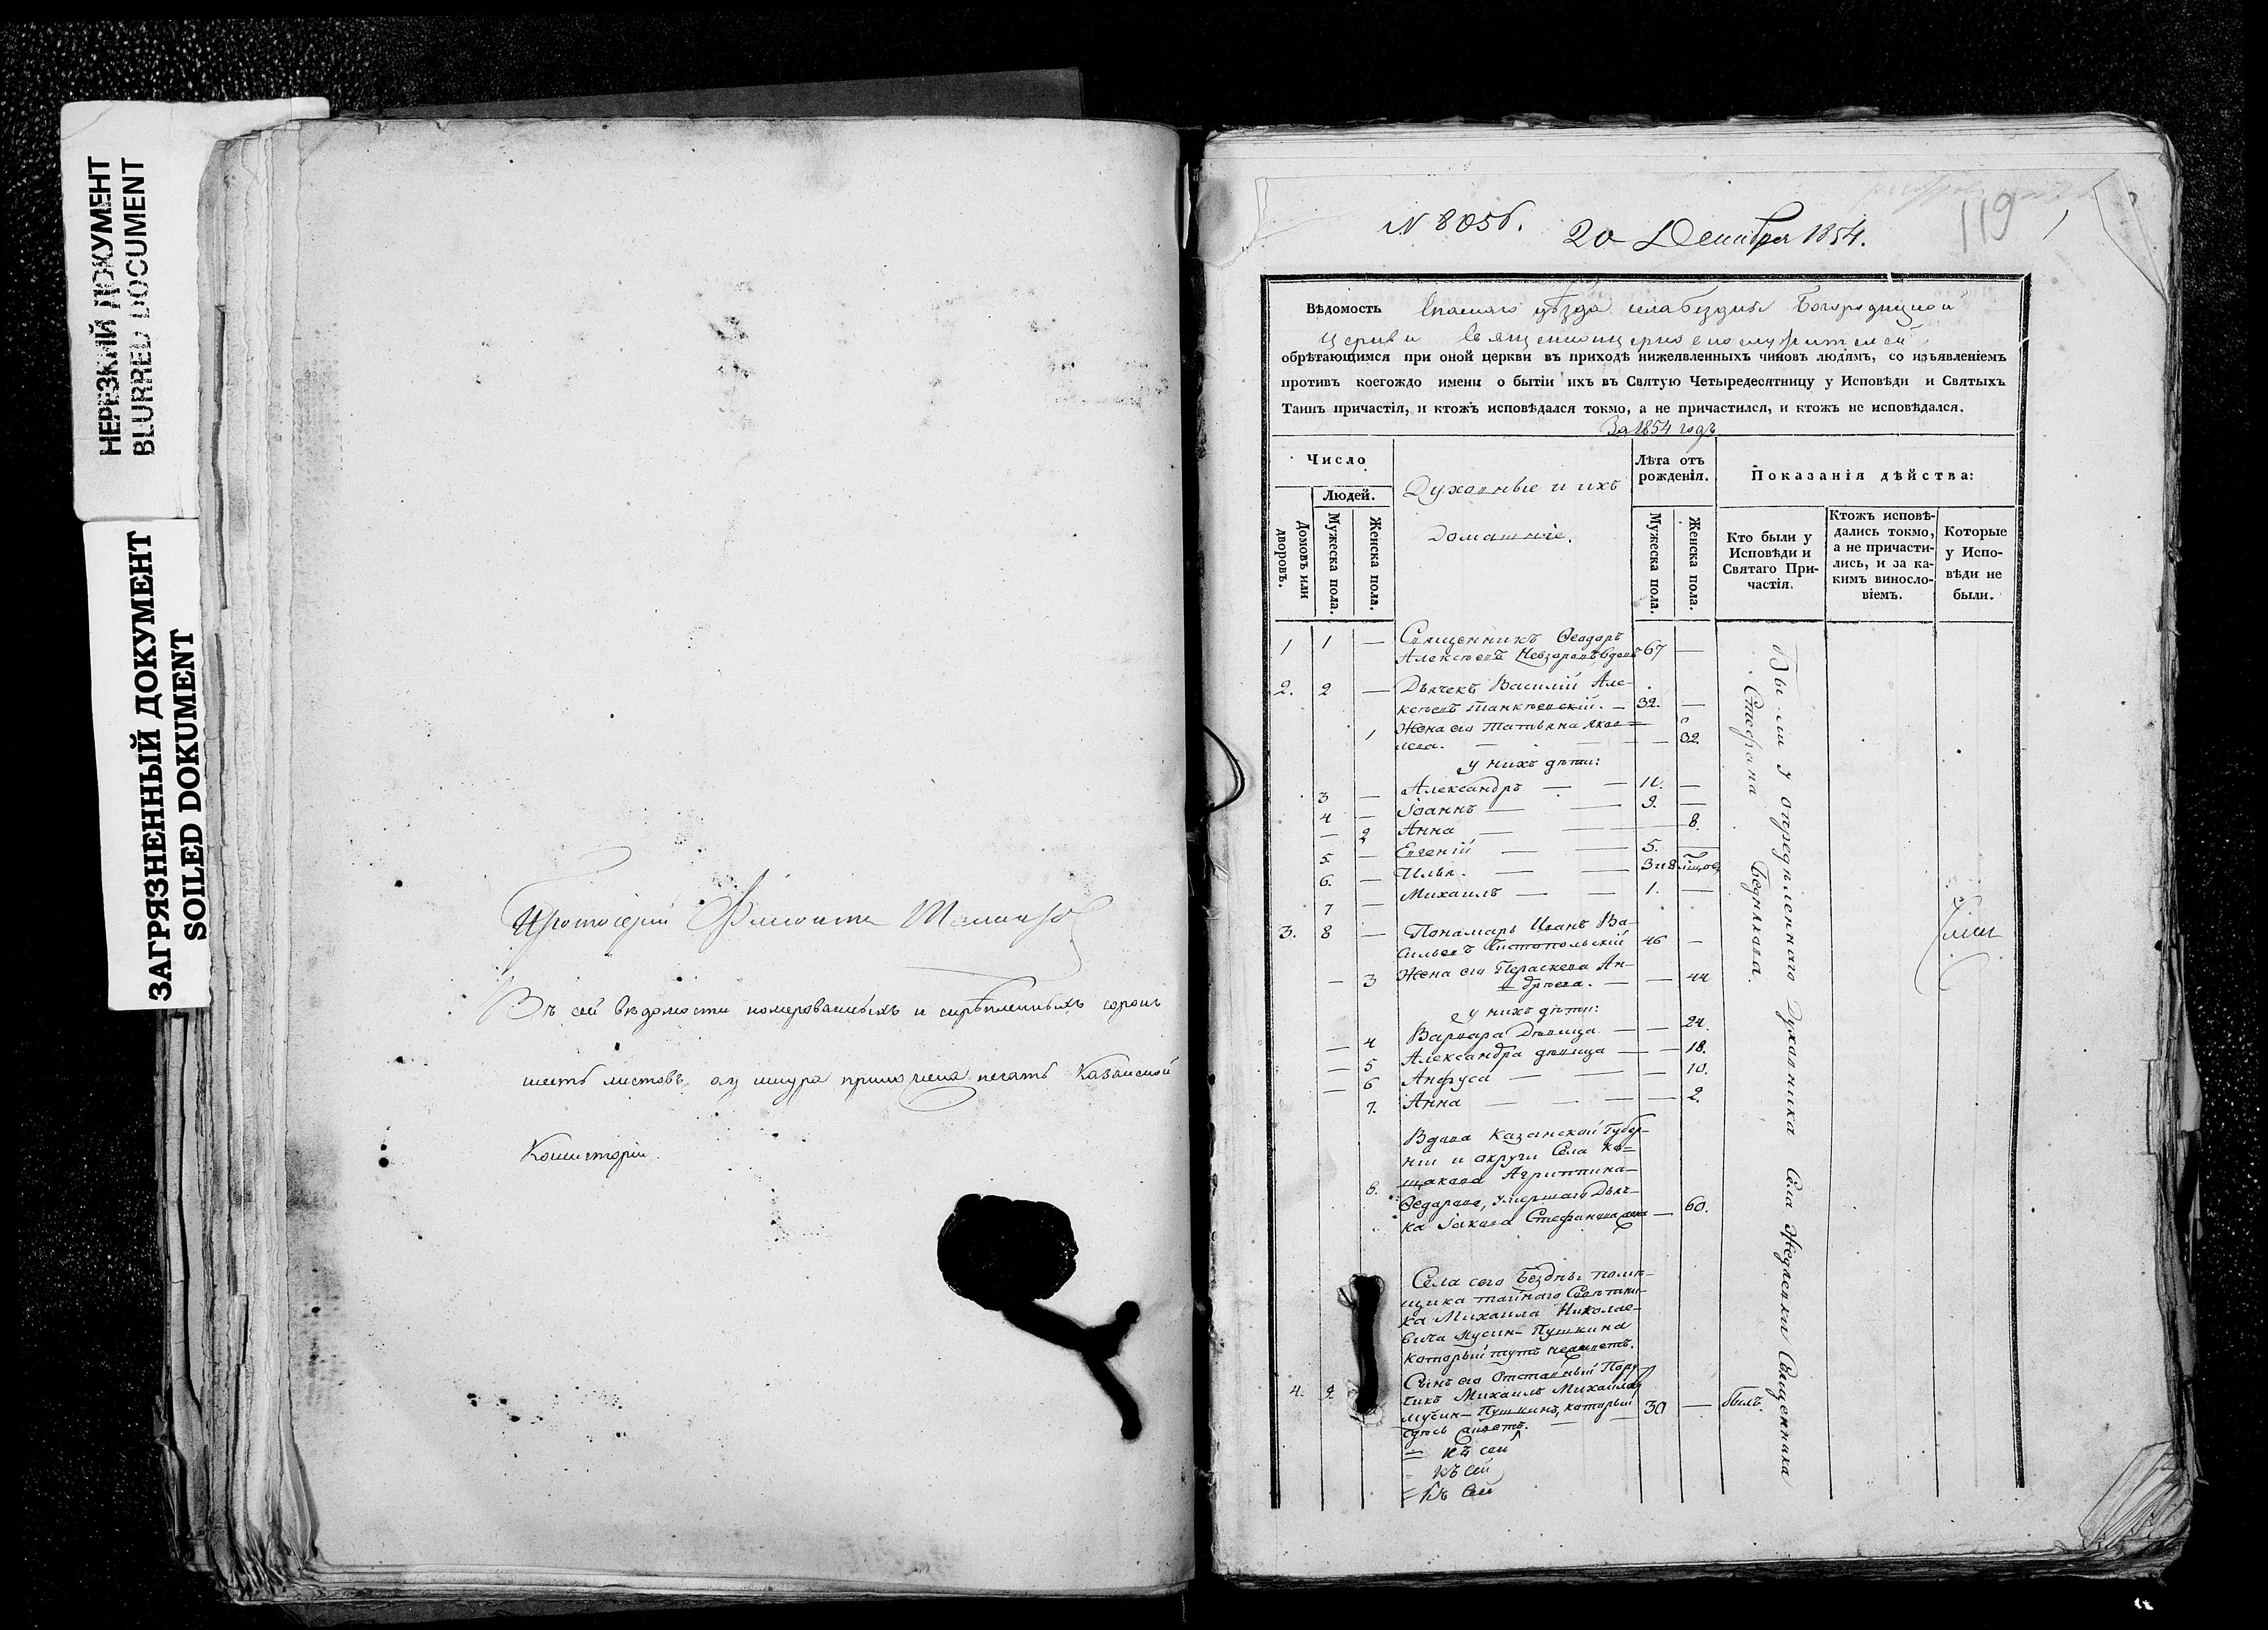 НЕРЕЗКИЙ ДОКУМЕНТ
BLURRED DOCUMENT
ЗАГРЯЗНЕННЫЙ ДОКУМЕНТ
SOILED DOKUMENT
Протоіерей
Въ сей вѣдомости номерованныхъ и скрѣпленныхъ сорокъ
шесть листовъ, къ шнуру приложена печать Казанской
Консисторіи.
N 8056. 20 Декабря 1854.
119
Вѣдомость Спаскаго уѣзда села Бездны Богородицкой
церкви Священноцерковнослужителей
обрѣтающимся при оной церкви въ приходѣ нижеявленныхъ чиновъ людямъ, со изъявленіемъ
противъ коегождо имени о бытіи ихъ въ Святую Четыредесятницу у Исповѣди и Святыхъ
Таинъ причастія, и ктожъ исповѣдался токмо, а не причастился, и ктожъ не исповѣдался.
За 1854 годъ
Число
Людей.
Домовъ или дворовъ.
Мужеска пола.
Женска пола.
Духовные и ихъ
домашніе.
Лѣта отъ рожденія.
Мужеска пола.
Женска пола.
Показанія дѣйства:
Кто были у Исповѣди и Святаго Причастія.
Ктожъ исповѣдались токмо, а не причастились, и за какимъ винословіемъ.
Которые у Исповѣди не были.
1 1 — Священникъ Ѳеодоръ
Алексѣевъ Невзоровъ вдовъ 67 —
2. 2 — Дьячекъ Василій Але-
ксѣевъ Танкѣевскій. — 32. —
1 Жена его Татьяна Яков=
лева. — — — 32.
у нихъ дѣти:
3 — Александръ — — 11. —
4 — Іоаннъ — — 9. —
— 2 Анна — — — 8.
5. — Евгеній — — 5. —
6. — Илья. — — 3 и 8 мѣсяцовъ
7 — Михаилъ — — 1. —
3. 8 — Пономарь Иванъ Ва-
сильевъ Чистопольскій 46 —
— 3 Жена его Параскева Ан-
дрѣева. — — 44
у нихъ дѣти:
— 4 Варвара Дѣвица — — 24.
— 5 Александра дѣвица — — 18.
— 6 Анфуса — — — 10.
7. Анна — — — — 2.
Вдова Казанской Губер-
ніи и округи Села Ко=
щакова Агриппина
8. Ѳедорова, умершаго Дьяч-
ка Іакова Стефанова жена — 60.
Села сего Бездны помѣ-
щика тайнаго Совѣтни-
ка Михаила Николае-
вича Мусин-Пушкина
который тутъ неживетъ.
4. 9. Сынъ его Отставный Пору-
чикъ Михаилъ Михайловъ
Мусин-Пушкинъ, который
здѣсь живетъ. — 30 — былъ.
= къ сей
= къ сей
= къ сей
Были у опредѣленнаго духовника Села Жедяевки Священника
Стефана Беднякова.